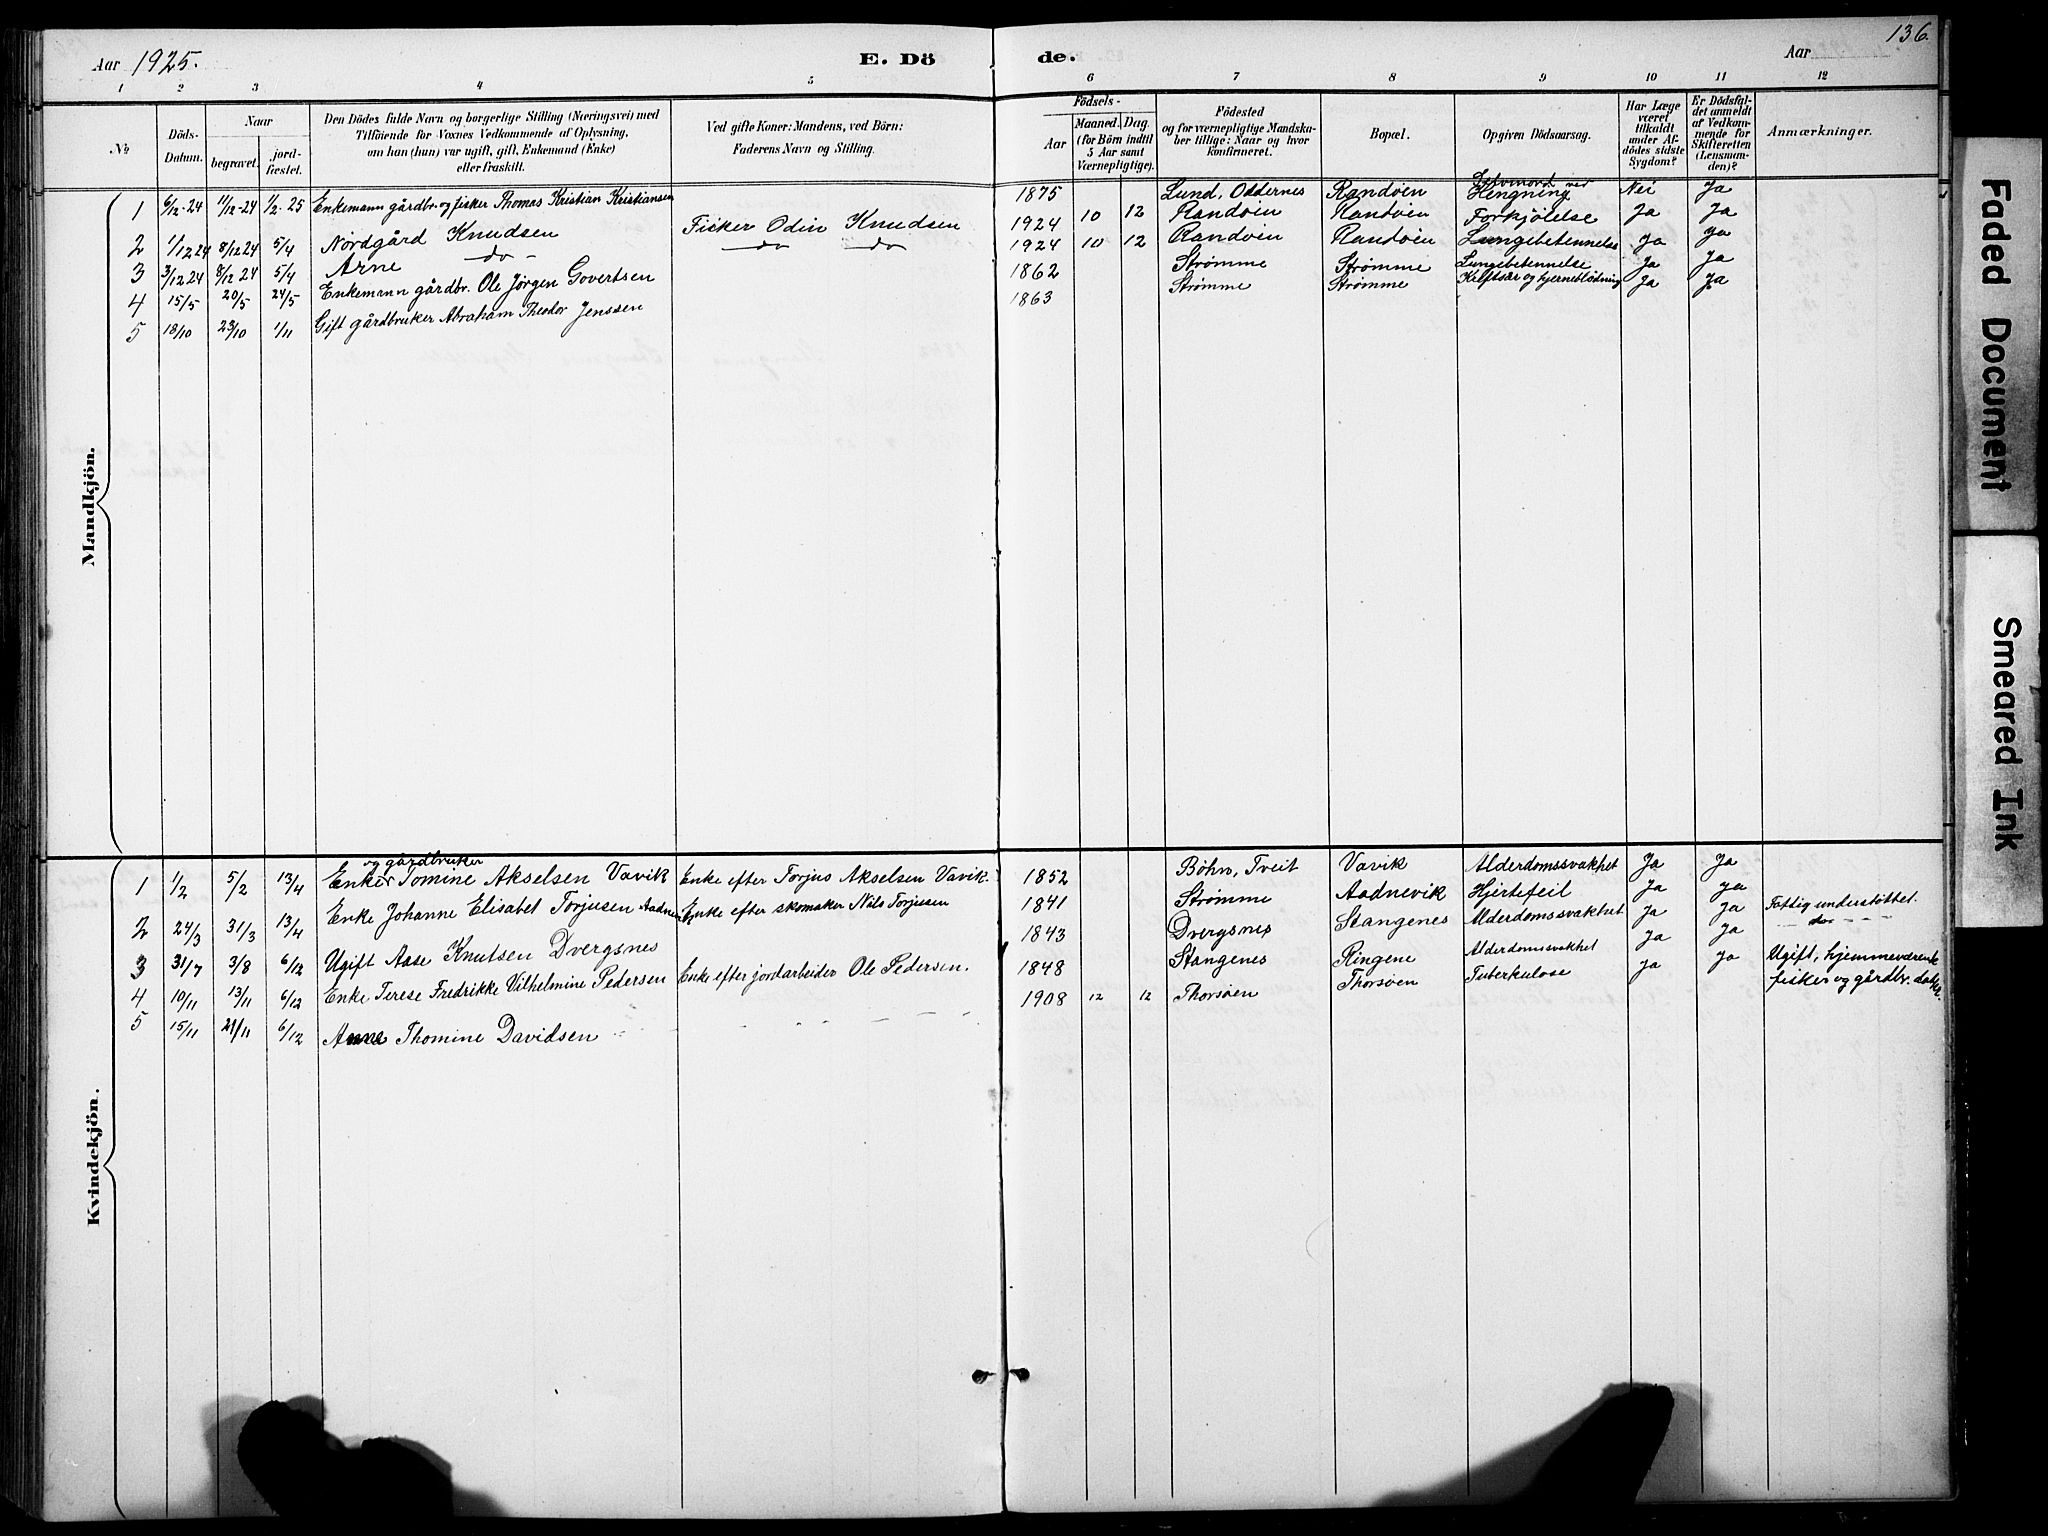 136.
Aar 1925. E. Dö de. Aar
1 2 3 4 5 6 7 8 9 10 11 12
No
Döds-Datum.
Naar
begravet.
jord-fæstet.
Den Dödes fulde Navn og borgerlige Stilling (Næringsvei) med
Tilföiende for Voxnes Vedkommende af Oplysning,
om han (hun) var ugift, gift, Enkemand (Enke)
eller fraskilt.
Ved gifte Koner: Mandens, ved Börn:
Faderens Navn og Stilling.
Födsels-
Aar
Maaned. Dag
(for Börn indtil
5 Aar samt
Værnepligtige).
Födested
og for værnepligtige Mandska-
ber tillige: Naar og hvor
konfirmeret.
Bopæl.
Opgiven Dödsaarsag.
Har Læge
været
tilkaldt
under Af-
dödes sidste
Sygdom?
Er Dödsfal-
det anmeldt
af Vedkom-
mende for
Skifteretten
(Lensman-
den)?
Anmærkninger.
Mandkjön.
1 6/12-24 11/12-24 1/2-25 Enkemann gårdbr. og fisker Thomas Kristian Kristiansen 1875 Lund, Oddernes Randøen Selvmord ved Hengning Nei Ja
2 1/12 24 8/12 24 5/4 Nordgård Knudsen Fisker Odin Knudsen 1924 10 12 Randøen Randøen Forkjølelse Ja Ja
3 3/12 24 8/12 24 5/4 Arne do - do do 1924 10 12 Randøen Randøen Lungebetennelse Ja Ja
4 15/5 20/5 24/5 Enkemann gårdbr. Ole Jørgen Govertsen 1862 Strømme Strømme Lungebetennelse Ja Ja
5 18/10 23/10 1/11 Gift gårdbruker Abraham Theodor Jenssen 1863 Strømme Strømme og hjerneblødning Ja Ja
Kvindekjön.
og gårdbruker
1 1/2 5/2 13/4 Enke Tomine Akselsen Vavik Enke efter Torjus Akselsen Vavik. 1852 Bøhn, Tveit Vavik Alderdomssvakhet Ja Ja
2 24/3 31/3 13/4 Enke Johanne Elisabet Torjusen Enke efter skomaker Nils Torjusen 1841 Strømme Aadnevik Hjertefeil Ja Ja Fattig understøttet.
3 31/7 3/8 6/12 Ugift Aase Knutsen Dvergsnes 1843 Dvergsnes Stangenes Alderdomssvakhet Ja Ja do
4 10/11 13/11 6/12 Enke Terese Fredrikke Vilhelmine Pedersen Enke efter jordarbeider Ole Pedersen. 1848 Stangenes Ringene Alderdomssvakhet Ja Ja
5 15/11 21/11 6/12 Anne Thomine Davidsen 1908 12 12 Thorsøen Thorsøen Tuberkulose Ja Ja Ugift, hjemmeværende
fisker og gårdbr.
Faded Document
Smeared Ink